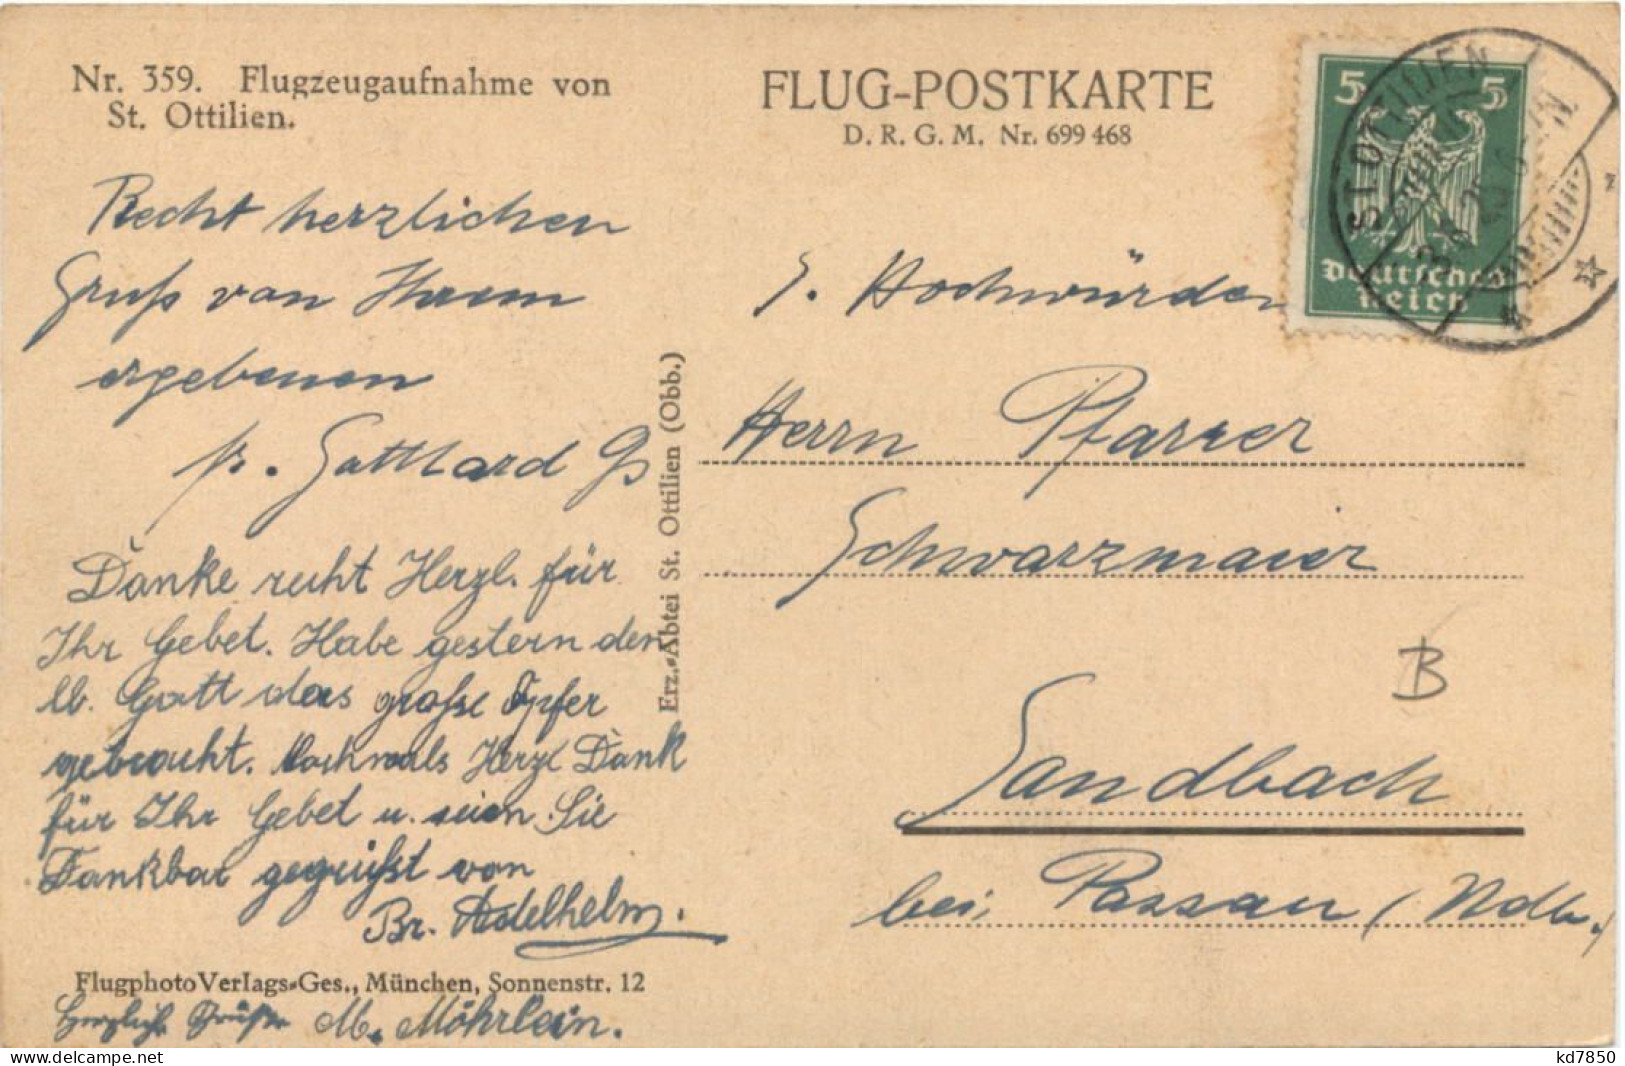 Nr. 359. Flugzeugaufnahme von
St. Ottilien.
Recht herzlichen
Gruß von Ihrem
ergebenen
P. Gotthard
Danke recht Herzl. für
Ihr Gebet. Habe gestern den
lb. Gott das große Opfer
gebracht. Nochmals Herzl Dank
für Ihr Gebet u. seien Sie
Dankbar gegrüßt von
Br. Adelhelm.
FlugphotoVerlags-Ges., München, Sonnenstr. 12
Herzliche Grüße M. Möhrlein.
Erz.-Abtei St. Ottilien (Obb.)
FLUG-POSTKARTE
D. R. G. M. Nr. 699 468
5 5
Deutsches
Reich
ST. OTTILIEN
S. Hochwürden
Herrn Pfarrer
Schwarzmaier
B
Sandbach
bei Passau (Ndb.)
delcampe.net
kd7850